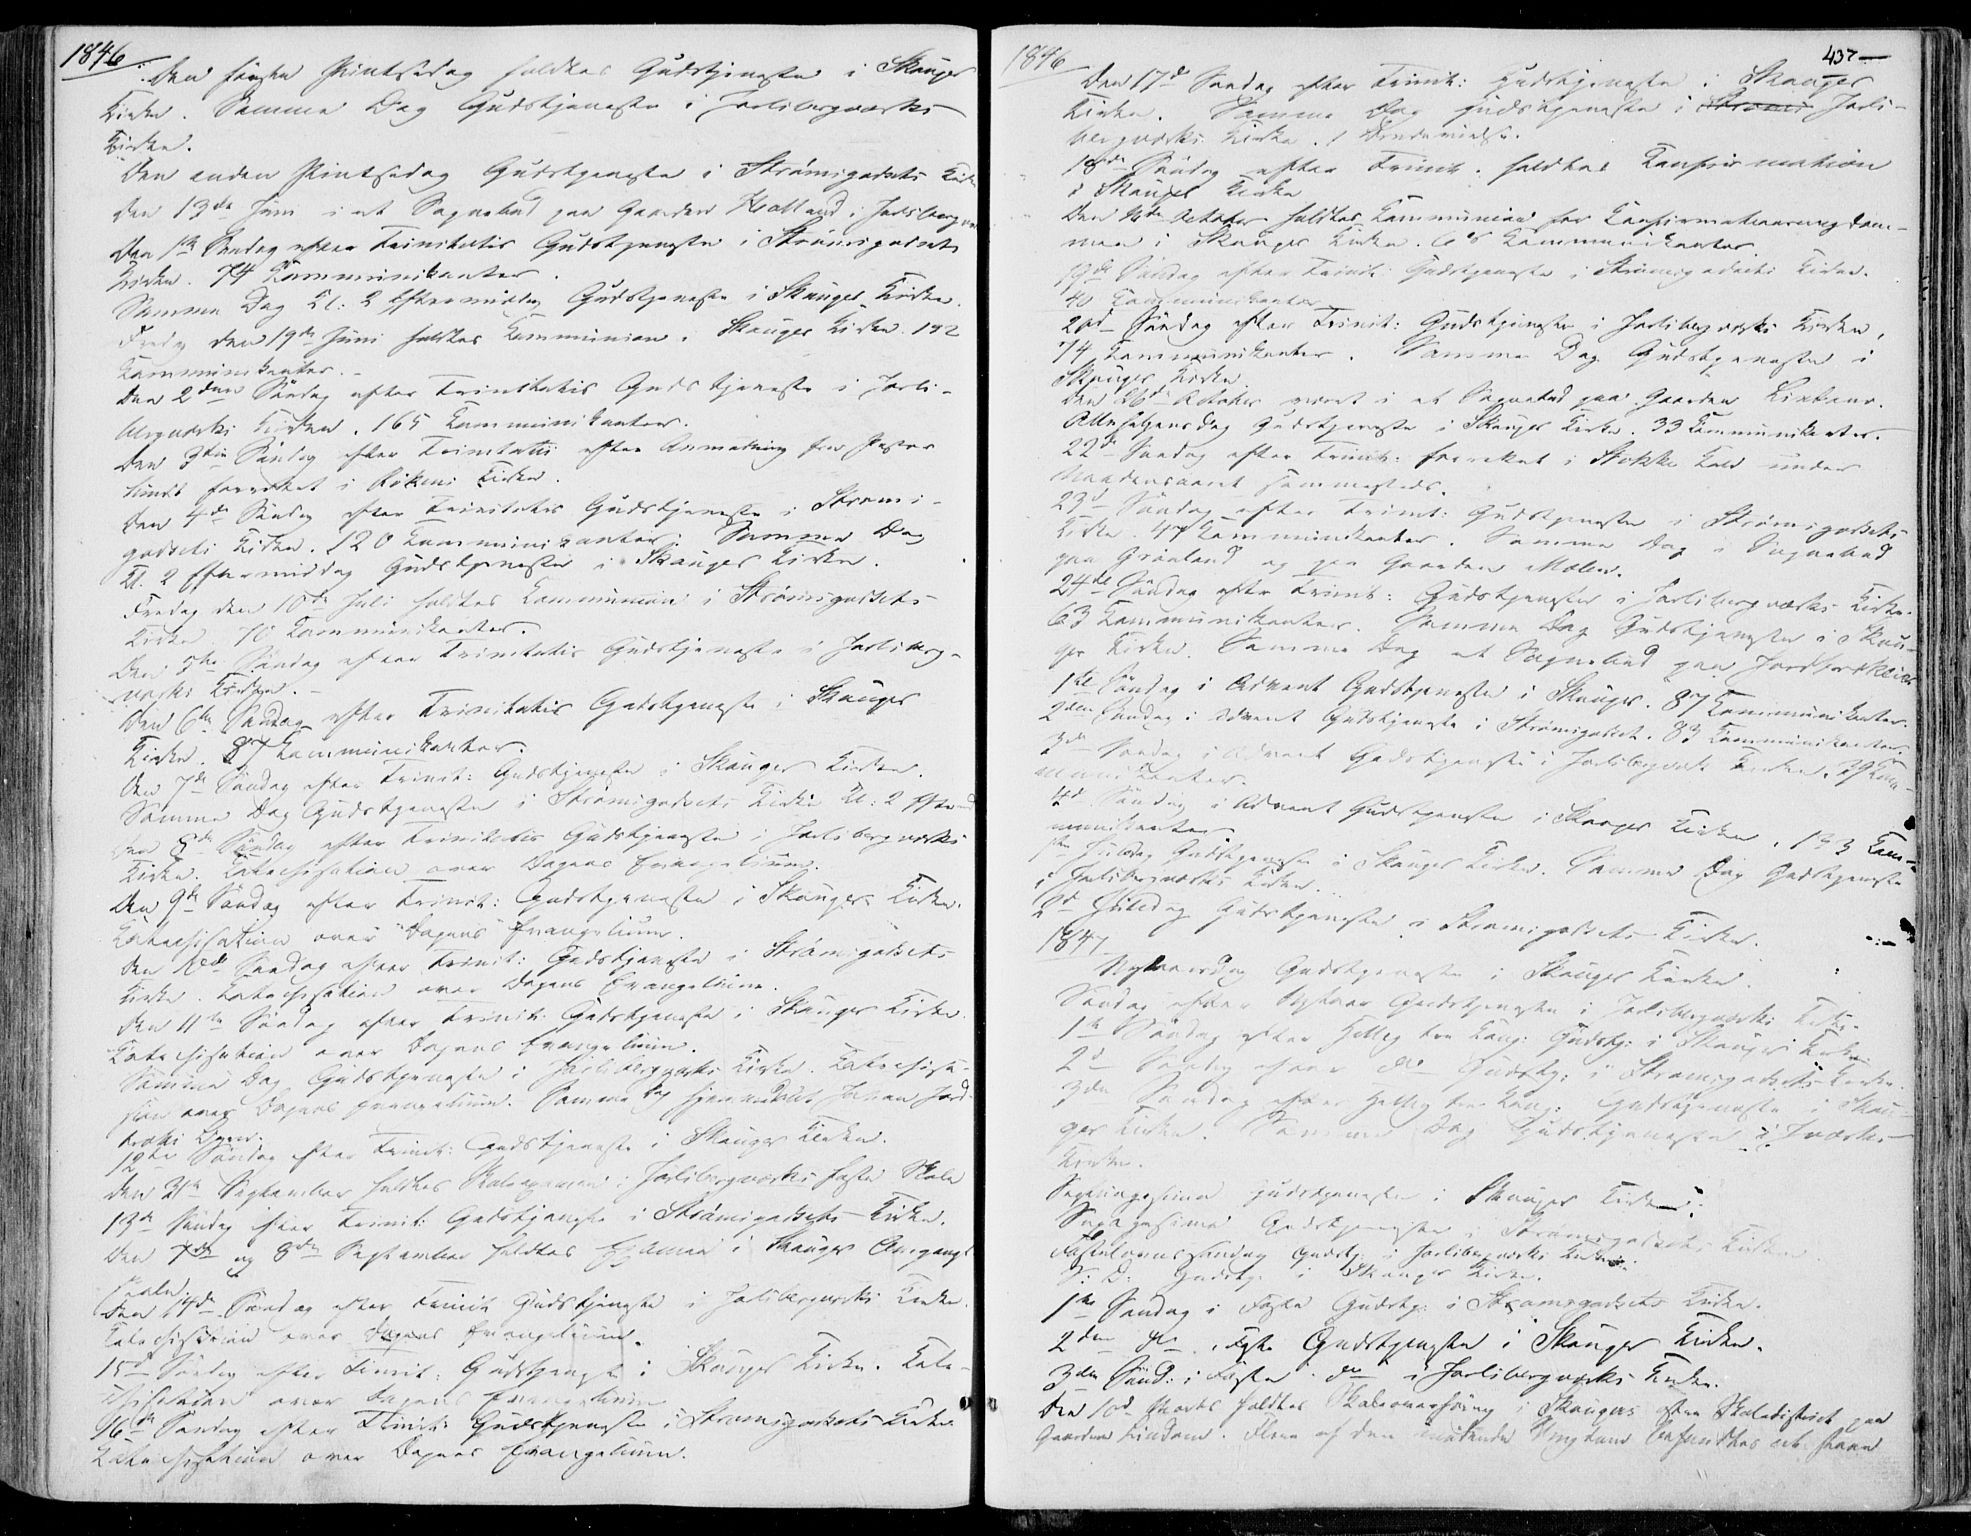 1846
Den første Pintsedag holdtes Gudstjeneste i Skauger
Kirke. Samme Dag Gudstjeneste i Jarlsbergværks
Kirke.
Den anden Pintsedag Gudstjeneste i Strømsgodsets Kirke
Den 13de Juni i et Sognebud paa Gaarden i Jarlsbergv
Den 1ste Søndag efter Trinitatis Gudstjeneste i Strømsgodsets
Kirke. 74 Kommunikanter.
Samme Dag Kl. 2 Eftermiddag Gudstjeneste i Skauger Kirke.
Fredag den 19de Juni holdtes Kommunion i Skauger Kirke. 192
Kommunikanter.
Den 2den Søndag efter Trinitatis Gudstjeneste i Jarls-
bergværks Kirke. 165 Kommunikanter.
Den 3die Søndag efter Trinitatis efter Anmodning fra Pastor
forrettet i Røkens Kirke.
Den 4de Søndag efter Trinitatis Gudstjeneste i Strøms-
godsets Kirke. 120 Kommunikanter. Samme Dag
Kl. 2 Eftermiddag Gudstjeneste i Skauger Kirke.
Fredag den 10de Juli holdtes Kommunion i Strømsgodsets
Kirke. 70 Kommunikanter.
Den 5te Søndag efter Trinitatis Gudstjeneste i Jarlsberg-
værks Kirke.
Den 6te Søndag efter Trinitatis Gudstjeneste i Skauger
Kirke. 87 Kommunikanter.
Den 7de Søndag efter Trinit: Gudstjeneste i Skauger Kirke.
Samme Dag Gudstjeneste i Strømsgodsets Kirke Kl: 2 Efterm
Den 8de Søndag efter Trinitatis Gudstjeneste i Jarlsbergværks
Kirke. Katechisation over Dagens Evangelium.
Den 9de Søndag efter Trinit: Gudstjeneste i Skauger Kirke.
Katechisation over Dagens Evangelium.
Den 10de Søndag efter Trinit: Gudstjeneste i Strømsgodsets
Kirke. Katechisation over Dagens Evangelium.
Den 11te Søndag efter Trinit: Gudstjeneste i Skauger Kirke.
Katechisation over Dagens Evangelium.
Samme Dag Gudstjeneste i Jarlsbergværks Kirke. Katechisa-
tion over Dagens Evangelium. Samme Dag hjemmedøbt Johan

12te Søndag efter Trinit: Gudstjeneste i Skauger Kirke.
Den September holdtes Skoleexamen i Jarlsbergværks faste Skole
13de Søndag efter Trinit: Gudstjeneste i Strømsgodsets Kirke.
Den 7de og 8de September holdtes Examen i Skauger Omgangs-
skole.
Den 14de Søndag efter Trinit Gudstjeneste i Jarlsbergværks Kirke.
Katechisation over Dagens Evangelium.
15de Søndag efter Trinit: Gudstjeneste i Skauger Kirke. Kate-
chisation over Dagens Evangelium
16de Søndag efter Trinit: Gudstjeneste i Strømsgodsets Kirke
Katechisation over Dagens Evangelium.
1846
437
Den 17de Søndag efter Trinit: Gudstjeneste i Skauger
Kirke. Samme Dag Gudstjeneste i Strøms Jarls-
bergværks Kirke. 1 Brudevielse.
18de Søndag efter Trinit. holdtes Konfirmation
i Skauger Kirke
Den October holdtes Kommunion for Konfirmationsungdom-
men i Skauger Kirke. 68 Kommunikanter.
19de Søndag efter Trinit: Gudstjeneste i Strømsgodsets Kirke.
40 Kommunikanter
20de Søndag efter Trinit: Gudstjeneste i Jarlsbergværks Kirke,
74 Kommunikanter. Samme Dag Gudstjeneste i
Skauger Kirke.
Den 26de October været i et Sognebud paa Gaarden
Allehelgensdag Gudstjeneste i Skauger Kirke. 33 Kommunikanter.
22de Søndag efter Trinit: forrettet i Stokke Kald under
Naadensaaret sammesteds.
23de Søndag efter Trinit: Gudstjeneste i Strømsgodsets
Kirke. 47 Kommunikanter. Samme Dag i Sognebud
paa Grønland og paa Gaarden Mælen.
24de Søndag efter Trinit: Gudstjeneste i Jarlsbergværks Kirke.
63 Kommunikanter. Samme Dag Gudstjeneste i Skau-
ger Kirke. Samme Dag et Sognebud paa
1ste Søndag i Advent Gudstjeneste i Skauger. 87 Kommunikanter.
2den Søndag i Advent Gudstjeneste i Strømsgodset. 83 Kommunikanter.
3die Søndag i Advent Gudstjeneste i Jarlsbergværk Kirke. 29 Kom-
munikanter.
4de Søndag i Advent Gudstjeneste i Skauger Kirke, 133 Kom-
munikanter
1ste Juledag Gudstjeneste i Skauger Kirke. Samme Dag Gudstjeneste
i Jarlsbergværks Kirke.
2d Juledag Gudstjeneste i Strømsgodsets Kirke.
1847
Nytaarsdag Gudstjeneste i Skauger Kirke.
Søndag efter Nytaar Gudstjeneste i Jarlsbergværks Kirke.
1ste Søndag efter Hellig tre Kong: Gudstj: i Skauger Kirke.
2d Søndag efter do Gudstj: i Strømsgodsets Kirke.
3die Søndag efter Hellig tre Kong: Gudstjeneste i Skau-
ger Kirke. Samme Dag Gudstjeneste i Jværks
Kirke.
Septuagesima Gudstjeneste i Skauger Kirke.
Sexagesima Gudstjeneste i Strømsgodsets Kirke
Fastelavnssøndag Gudstj: i Jarlsbergværks Kirke.
S: D: Gudstj: i Skauger Kirke.
1ste Søndag i Faste Gudstj: i Strømsgodsets Kirke.
2den do i Faste Gudstjeneste i Skauger Kirke.
3die Sønd: i Faste do i Jarlsbergværks Kirke.
Den 10de Marts holdtes i Skaugers Skoledistrict paa
Gaarden. Flere af den mødende Ungdom befandtes